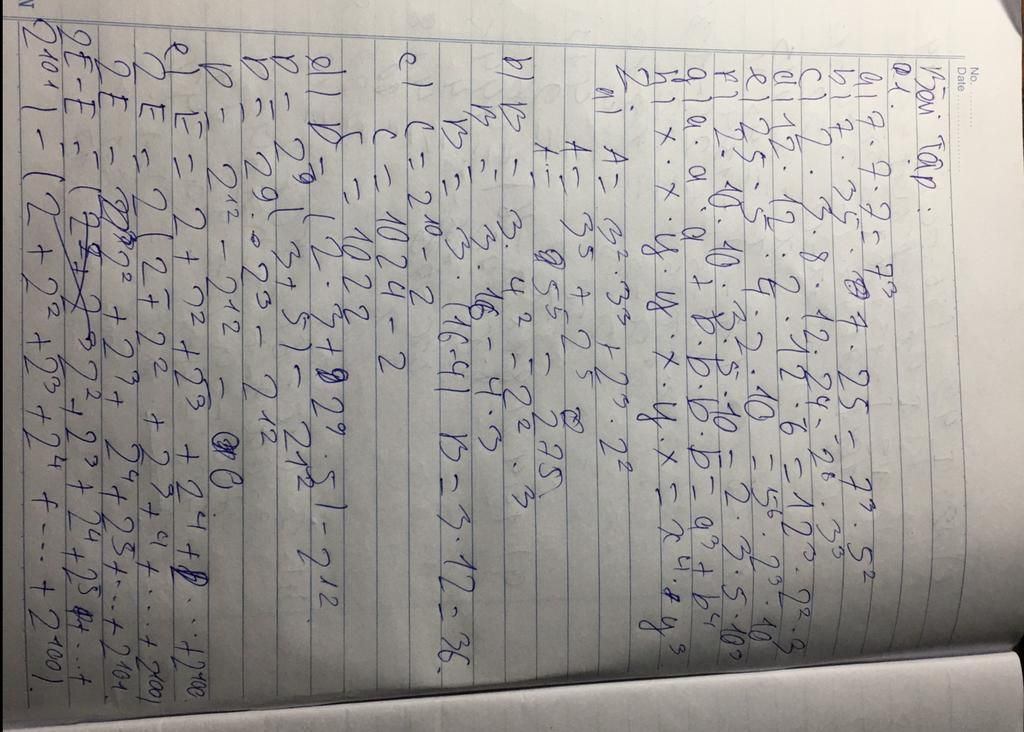 No.
Date
Bài Tập :
a1.
a) 7 . 7 . 7 = 7³
b) 7 . 35 . 7 . 25 = 7³ . 5²
c) 2 . 3 . 8 . 12 . 24 = 2⁸ . 3³
d) 12 . 12 . 2 . 12 . 6 = 12³ . 2² . 3
e) 25 . 5 . 4 . 2 . 10 = 5⁶ . 2³ . 10
f) 2 . 10 . 10 . 3 . 5 . 10 = 2 . 3 . 5 . 10³
g) a . a . a + b . b . b . b = a³ + b⁴
h) x . x . y . y . x . y . x = x⁴ . y³
2.
a) A = 3² . 3³ + 2³ . 2²
A = 3⁵ + 2⁵
A = 255 = 275
b) B = 3 . 4² = 2² . 3
B = 3 . 16 - 4 . 3
B = 3 . (16 - 4) B = 3 . 12 = 36.
c) C = 2¹⁰ - 2
C = 1024 - 2
C = 1022
d) D = (2 . 3 + 2⁹ . 5) - 2¹²
D = 2⁹ (3 + 5) - 2¹²
D = 2⁹ . 2³ - 2¹²
D = 2¹² - 2¹² = 0
e) E = 2 + 2² + 2³ + 2⁴ + ... + 2¹⁰⁰
2E = 2(2 + 2² + 2³ + ⁴ + .... + 2¹⁰⁰)
2E = 2² + 2³ + 2⁴ + 2⁵ + ... + 2¹⁰¹.
2E - E = ( 2² + 2³ + 2⁴ + 2⁵ + ... +
2¹⁰¹) - (2 + 2² + 2³ + 2⁴ + .... + 2¹⁰⁰).